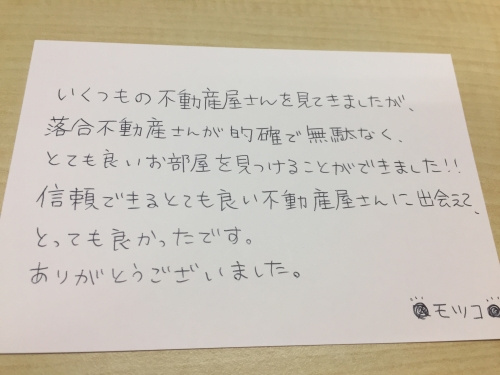 いくつもの不動産屋さんを見てきましたが、
落合不動産さんが的確で無駄なく、
とても良いお部屋を見つけることができました!!
信頼できるとても良い不動産屋さんに出会えて、
とっても良かったです。
ありがとうございました。
モツコ